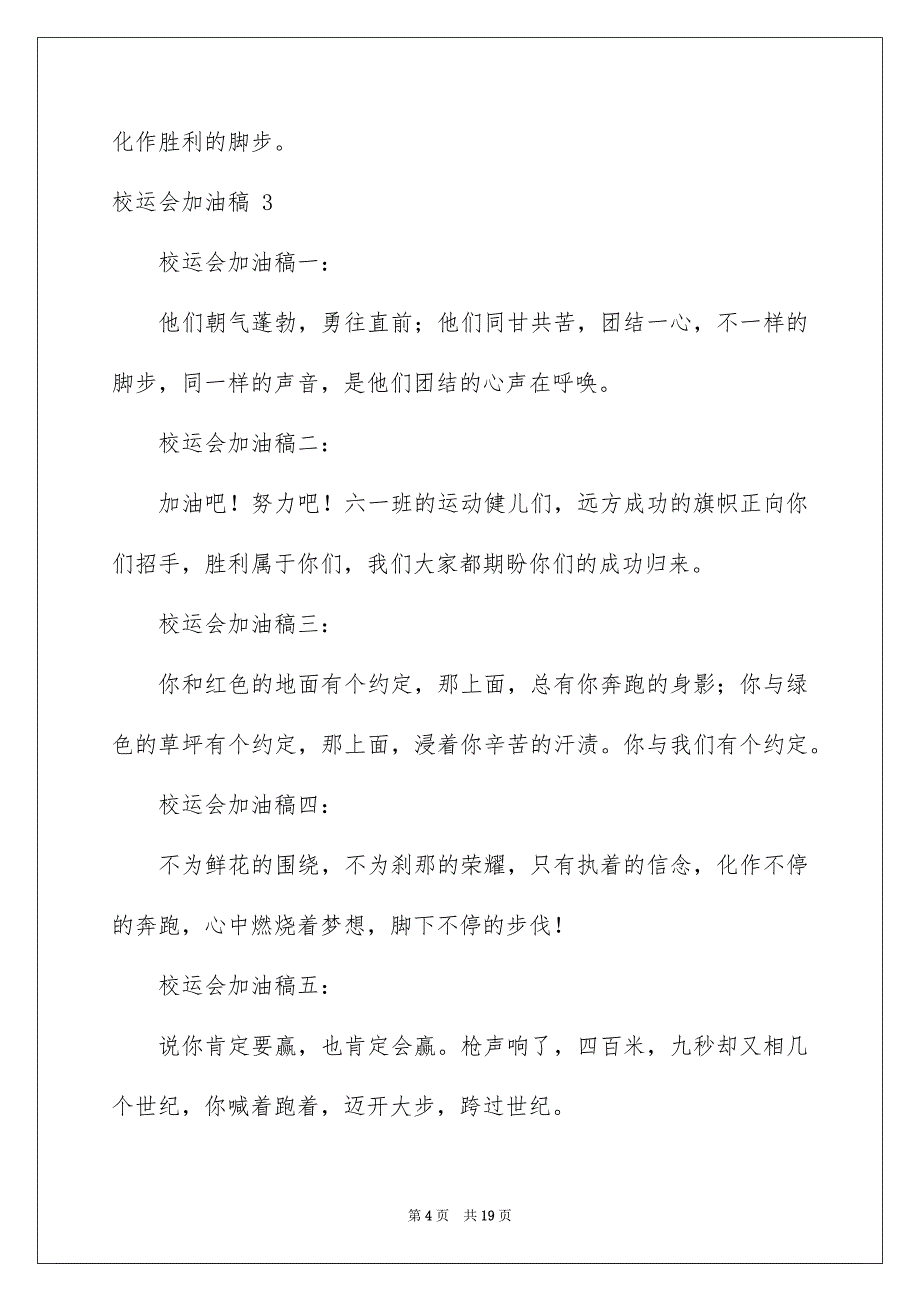 化作胜利的脚步。
校运会加油稿 3
校运会加油稿一：
他们朝气蓬勃，勇往直前；他们同甘共苦，团结一心，不一样的
脚步，同一样的声音，是他们团结的心声在呼唤。
校运会加油稿二：
加油吧！努力吧！六一班的运动健儿们，远方成功的旗帜正向你
们招手，胜利属于你们，我们大家都期盼你们的成功归来。
校运会加油稿三：
你和红色的地面有个约定，那上面，总有你奔跑的身影；你与绿
色的草坪有个约定，那上面，浸着你辛苦的汗渍。你与我们有个约定。
校运会加油稿四：
不为鲜花的围绕，不为刹那的荣耀，只有执着的信念，化作不停
的奔跑，心中燃烧着梦想，脚下不停的步伐！
校运会加油稿五：
说你肯定要赢，也肯定会赢。枪声响了，四百米，九秒却又相几
个世纪，你喊着跑着，迈开大步，跨过世纪。
第 4 页 共 19 页